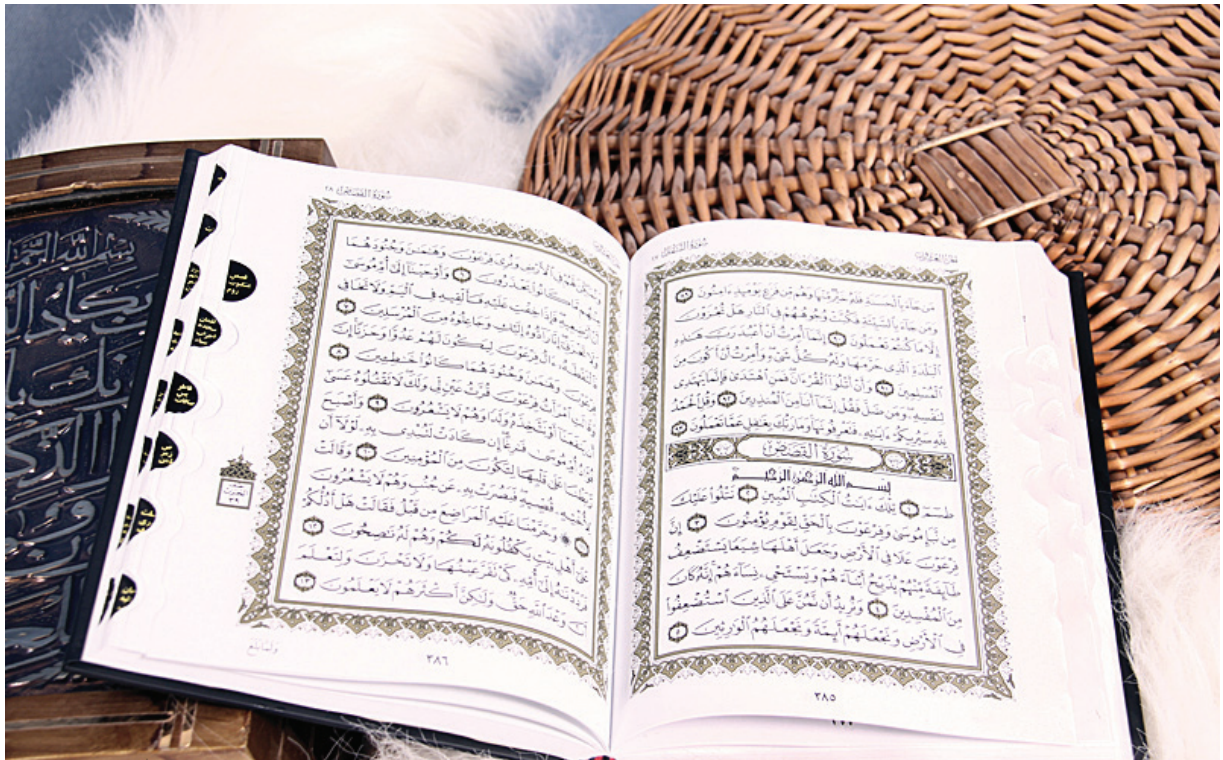 سُورَةُ النَّمْلِ ٢٧
الجزء العشرون
مَن جَآءَ بِٱلْحَسَنَةِ فَلَهُۥ خَيْرٌ مِّنْهَا وَهُم مِّن فَزَعٍ يَوْمَئِذٍ ءَامِنُونَ ٨٩
وَمَن جَآءَ بِٱلسَّيِّئَةِ فَكُبَّتْ وُجُوهُهُمْ فِى ٱلنَّارِ هَلْ تُجْزَوْنَ
إِلَّا مَا كُنتُمْ تَعْمَلُونَ ٩٠ إِنَّمَآ أُمِرْتُ أَنْ أَعْبُدَ رَبَّ هَٰذِهِ
ٱلْبَلْدَةِ ٱلَّذِى حَرَّمَهَا وَلَهُۥ كُلُّ شَىْءٍ وَأُمِرْتُ أَنْ أَكُونَ مِنَ
ٱلْمُسْلِمِينَ ٩١ وَأَنْ أَتْلُوَا۟ ٱلْقُرْءَانَ فَمَنِ ٱهْتَدَىٰ فَإِنَّمَا يَهْتَدِى
لِنَفْسِهِۦ وَمَن ضَلَّ فَقُلْ إِنَّمَآ أَنَا۠ مِنَ ٱلْمُنذِرِينَ ٩٢ وَقُلِ ٱلْحَمْدُ
لِلَّهِ سَيُرِيكُمْ ءَايَٰتِهِۦ فَتَعْرِفُونَهَا وَمَا رَبُّكَ بِغَٰفِلٍ عَمَّا تَعْمَلُونَ ٩٣
سُورَةُ القَصَصِ
بِسْمِ ٱللَّهِ ٱلرَّحْمَٰنِ ٱلرَّحِيمِ
طسٓمٓ ١ تِلْكَ ءَايَٰتُ ٱلْكِتَٰبِ ٱلْمُبِينِ ٢ نَتْلُوا۟ عَلَيْكَ
مِن نَّبَإِ مُوسَىٰ وَفِرْعَوْنَ بِٱلْحَقِّ لِقَوْمٍ يُؤْمِنُونَ ٣ إِنَّ
فِرْعَوْنَ عَلَا فِى ٱلْأَرْضِ وَجَعَلَ أَهْلَهَا شِيَعًا يَسْتَضْعِفُ
طَآئِفَةً مِّنْهُمْ يُذَبِّحُ أَبْنَآءَهُمْ وَيَسْتَحْىِۦ نِسَآءَهُمْ إِنَّهُۥ كَانَ
مِنَ ٱلْمُفْسِدِينَ ٤ وَنُرِيدُ أَن نَّمُنَّ عَلَى ٱلَّذِينَ ٱسْتُضْعِفُوا۟
فِى ٱلْأَرْضِ وَنَجْعَلَهُمْ أَئِمَّةً وَنَجْعَلَهُمُ ٱلْوَٰرِثِينَ ٥
٣٨٥
سُورَةُ القَصَصِ ٢٨
وَنُمَكِّنَ لَهُمْ فِى ٱلْأَرْضِ وَنُرِىَ فِرْعَوْنَ وَهَٰمَٰنَ وَجُنُودَهُمَا
مِنْهُم مَّا كَانُوا۟ يَحْذَرُونَ ٦ وَأَوْحَيْنَآ إِلَىٰٓ أُمِّ مُوسَىٰٓ
أَنْ أَرْضِعِيهِ فَإِذَا خِفْتِ عَلَيْهِ فَأَلْقِيهِ فِى ٱلْيَمِّ وَلَا تَخَافِى
وَلَا تَحْزَنِىٓ إِنَّا رَآدُّوهُ إِلَيْكِ وَجَاعِلُوهُ مِنَ ٱلْمُرْسَلِينَ ٧
فَٱلْتَقَطَهُۥٓ ءَالُ فِرْعَوْنَ لِيَكُونَ لَهُمْ عَدُوًّا وَحَزَنًا إِنَّ
فِرْعَوْنَ وَهَٰمَٰنَ وَجُنُودَهُمَا كَانُوا۟ خَٰطِـِٔينَ ٨
وَقَالَتِ ٱمْرَأَتُ فِرْعَوْنَ قُرَّتُ عَيْنٍ لِّى وَلَكَ لَا تَقْتُلُوهُ عَسَىٰٓ
أَن يَنفَعَنَآ أَوْ نَتَّخِذَهُۥ وَلَدًا وَهُمْ لَا يَشْعُرُونَ ٩ وَأَصْبَحَ
فُؤَادُ أُمِّ مُوسَىٰ فَٰرِغًا إِن كَادَتْ لَتُبْدِى بِهِۦ لَوْلَآ أَن
رَّبَطْنَا عَلَىٰ قَلْبِهَا لِتَكُونَ مِنَ ٱلْمُؤْمِنِينَ ١٠ وَقَالَتْ
لِأُخْتِهِۦ قُصِّيهِ فَبَصُرَتْ بِهِۦ عَن جُنُبٍ وَهُمْ لَا يَشْعُرُونَ
١١ ۞ وَحَرَّمْنَا عَلَيْهِ ٱلْمَرَاضِعَ مِن قَبْلُ فَقَالَتْ هَلْ أَدُلُّكُمْ
عَلَىٰٓ أَهْلِ بَيْتٍ يَكْفُلُونَهُۥ لَكُمْ وَهُمْ لَهُۥ نَٰصِحُونَ ١٢
فَرَدَدْنَٰهُ إِلَىٰٓ أُمِّهِۦ كَىْ تَقَرَّ عَيْنُهَا وَلَا تَحْزَنَ وَلِتَعْلَمَ
أَنَّ وَعْدَ ٱللَّهِ حَقٌّ وَلَٰكِنَّ أَكْثَرَهُمْ لَا يَعْلَمُونَ ١٣
وَلَمَّا بَلَغَ
٣٨٦
قصص
عنكبوت
روم
لقمان
سجدة
أحزاب
سبأ
فاطر
يس
صافات
بسم الله